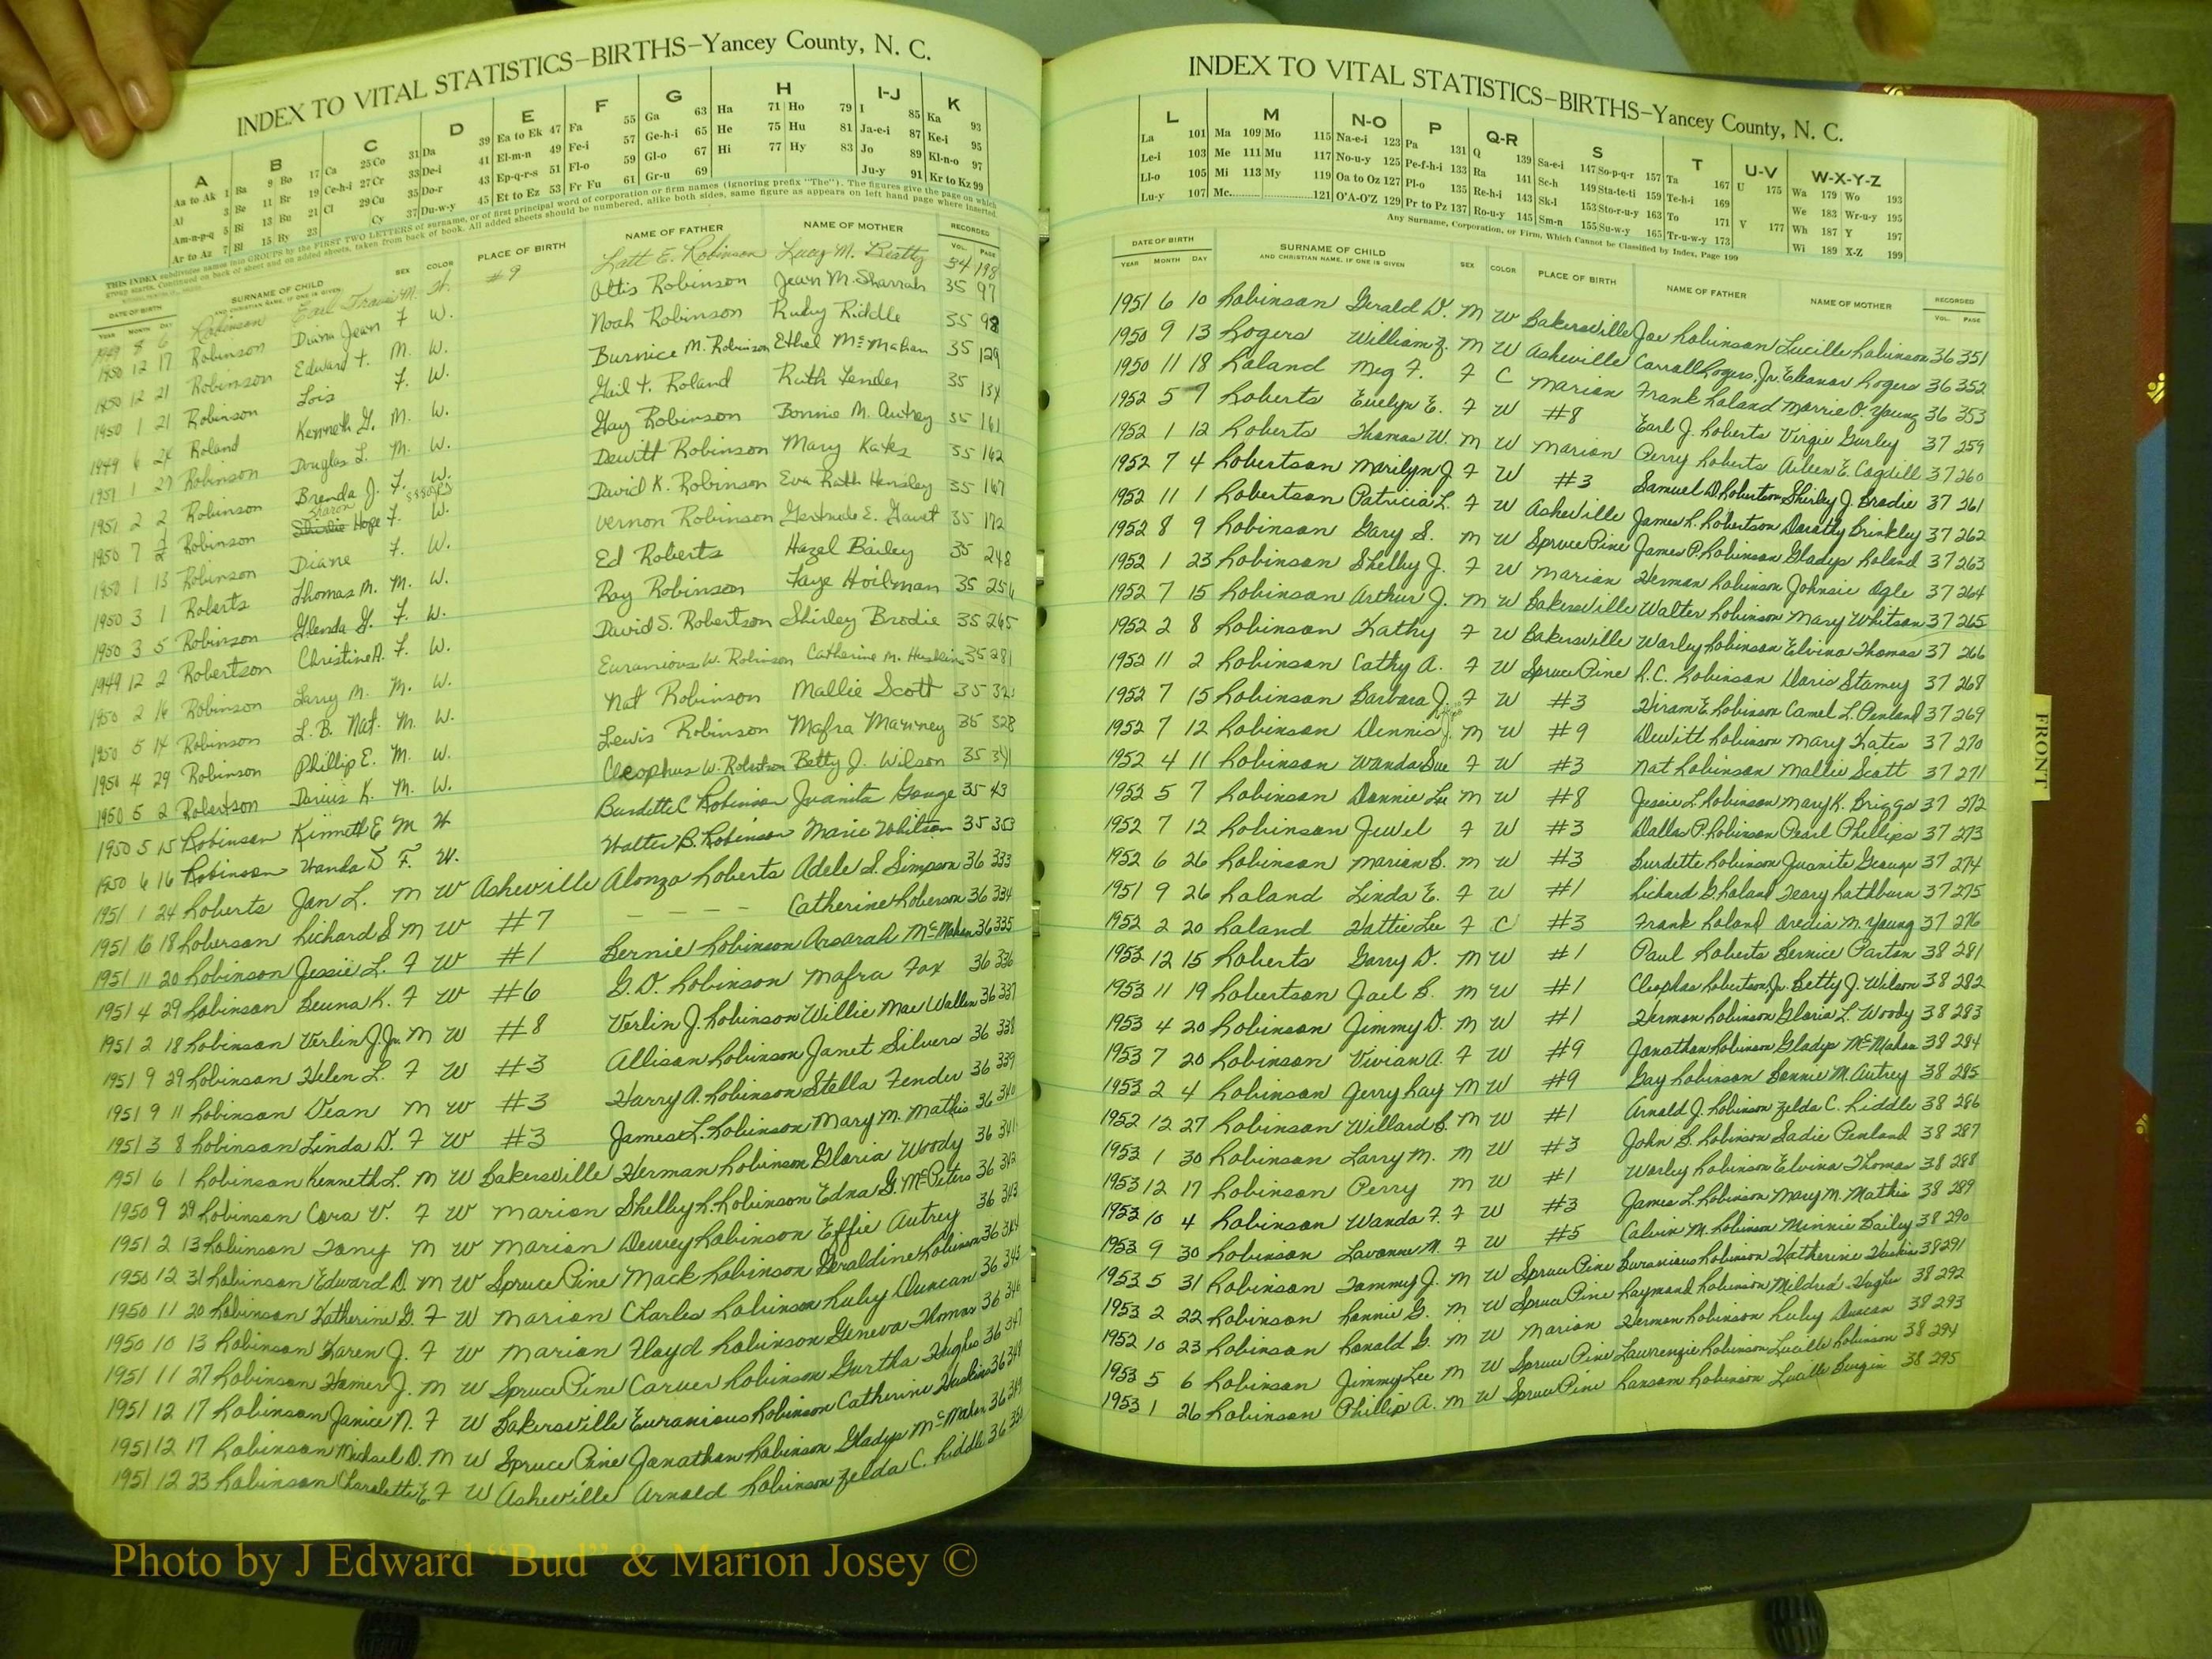 INDEX TO VITAL STATISTICS–BIRTHS–Yancey County, N. C.
A B C D E F G H I-J K
Aa to Ak 1 Ba 9 Bo 17 Ca 25 Co 31 Da 39 Ea to Ek 47 Fa 55 Ga 63 Ha 71 Ho 79 I 85 Ka 93
Al 3 Be 11 Br 19 Ce-h-i 27 Cr 33 De-i 41 El-m-n 49 Fe-i 57 Ge-h-i 65 He 75 Hu 81 Ja-e-i 87 Ke-i 95
Am-n-p-q 5 Bi 13 Bu 21 Cl 29 Cu 35 Do-r 43 Ep-q-r-s 51 Fl-o 59 Gl-o 67 Hi 77 Hy 83 Jo 89 Kl-n-o 97
Ar to Az 7 Bl 15 By 23 Cy 37 Du-w-y 45 Et to Ez 53 Fr Fu 61 Gr-u 69 Ju-y 91 Kr to Kz 99
THIS INDEX subdivides names into GROUPS by the FIRST TWO LETTERS of surname, or of first principal word of corporation or firm names (ignoring prefix "The"). The figures give the page on which
group starts. Continued on back of sheet and on added sheets, taken from back of book. All added sheets should be numbered, alike both sides, same figure as appears on left hand page where inserted.
DATE OF BIRTH SURNAME OF CHILD SEX COLOR PLACE OF BIRTH NAME OF FATHER NAME OF MOTHER RECORDED
YEAR MONTH DAY AND CHRISTIAN NAME, IF ONE IS GIVEN VOL. PAGE
1949 8 6 Robinson Earl Travis M. W. #9 Latt E. Robinson Lucy M. Beatty 34 198
1950 12 17 Robinson Diana Jean F W. Ottis Robinson Jean M. Sharrah 35 97
1950 12 21 Robinson Edward T. M. W. Noah Robinson Ruby Riddle 35 98
1950 1 21 Robinson Lois F. W. Burnice M. Robinson Ethel McMahan 35 129
1949 6 24 Roland Kenneth G. M. W. Gail T. Roland Ruth Fender 35 134
1951 1 27 Robinson Douglas L. M. W. Gay Robinson Bonnie M. Autrey 35 161
1951 2 2 Robinson Brenda J. F. W. Dewitt Robinson Mary Kates 35 162
1950 7 2 Robinson Sharon Hope F. W. David K. Robinson Eva Ruth Hensley 35 167
1950 1 13 Robinson Diane F. W. Vernon Robinson Gertrude E. 35 172
1950 3 1 Roberts Thomas M. M. W. Ed Roberts Hazel Bailey 35 248
1950 3 5 Robinson Glenda G. F. W. Roy Robinson Faye Hoilman 35 256
1949 12 2 Robertson Christine A. F. W. David S. Robertson Shirley Brodie 35 265
1950 2 14 Robinson Larry M. M. W. Euranious W. Robinson Catherine M. Huskins 35 281
1950 5 14 Robinson L. B. Nat. M. W. Nat Robinson Mallie Scott 35 32
1950 4 29 Robinson Phillip E. M. W. Lewis Robinson Mafra Mawney 35 328
1950 5 2 Robertson Darius K. M. W. Cleophus W. Robertson Betty J. Wilson 35 341
1950 5 15 Robinson Kinneth E M W Burdette C Robinson Juanita Gouge 35 43
1950 6 16 Robinson Wanda D F. W. Walter B. Robinson Marie Whitson 35 353
1951 1 24 Roberts Jan L. M W Asheville Alonzo Roberts Adele S. Simpson 36 333
1951 6 18 Roberson Richard S M W #7 – – – – Catherine Roberson 36 334
1951 11 20 Robinson Jessie L. F W #1 Bernie Robinson Arsarah McMahan 36 335
1951 4 29 Robinson Beuna K. F W #6 G. D. Robinson Mafra Fox 36 336
1951 2 18 Robinson Verlin J. Jr. M W #8 Verlin J. Robinson Willie Mae Wallen 36 337
1951 9 29 Robinson Helen L. F W #3 Allison Robinson Janet Silvers 36 338
1951 9 11 Robinson Dean M W #3 Harry A. Robinson Stella Fender 36 339
1951 3 8 Robinson Linda D. F W #3 James L. Robinson Mary M. Mathis 36 340
1951 6 1 Robinson Kenneth L. M W Bakersville Herman Robinson Gloria Woody 36 341
1950 9 29 Robinson Cora V. F W Marion Shelby R. Robinson Edna G. McPeters 36 342
1951 2 13 Robinson Tony M W Marion Dewey Robinson Effie Autrey 36 343
1950 12 31 Robinson Edward D. M W Spruce Pine Mack Robinson Geraldine Robinson 36 344
1950 11 20 Robinson Katherine G. F W Marion Charles Robinson Ruby Duncan 36 345
1950 10 13 Robinson Karen J. F W Marion Floyd Robinson Geneva Thomas 36 346
1951 11 27 Robinson Homer J. M W Spruce Pine Carver Robinson Gurtha Hughes 36 347
1951 12 17 Robinson Janice N. F W Bakersville Euranious Robinson Catherine Huskins 36 348
1951 12 17 Robinson Michael D. M W Spruce Pine Jonathan Robinson Gladys McMahan 36 349
1951 12 23 Robinson Charolette E. F W Asheville Arnold Robinson Zelda C. Riddle 36 350
INDEX TO VITAL STATISTICS–BIRTHS–Yancey County, N. C.
L M N-O P Q-R S T U-V W-X-Y-Z
La 101 Ma 109 Mo 115 Na-e-i 123 Pa 131 Q 139 Sa-e-i 147 So-p-q-r 157 Ta 167 U 175 Wa 179 Wo 193
Le-i 103 Me 111 Mu 117 No-u-y 125 Pe-f-h-i 133 Ra 141 Sc-h 149 Sta-te-ti 159 Te-h-i 169 We 183 Wr-u-y 195
Ll-o 105 Mi 113 My 119 Oa to Oz 127 Pl-o 135 Re-h-i 143 Sk-l 153 Sto-r-u-y 163 To 171 V 177 Wh 187 Y 197
Lu-y 107 Mc 121 O'A-O'Z 129 Pr to Pz 137 Ro-u-y 145 Sm-n 155 Su-w-y 165 Tr-u-w-y 173 Wi 189 X-Z 199
Any Surname, Corporation, or Firm, Which Cannot be Classified by Index, Page 199
DATE OF BIRTH SURNAME OF CHILD SEX COLOR PLACE OF BIRTH NAME OF FATHER NAME OF MOTHER RECORDED
YEAR MONTH DAY AND CHRISTIAN NAME, IF ONE IS GIVEN VOL. PAGE
1951 6 10 Robinson Gerald D. M W Bakersville Joe Robinson Lucille Robinson 36 351
1950 9 13 Rogers William Z. M W Asheville Carroll Rogers, Jr. Eleanor Rogers 36 352
1950 11 18 Roland Meg F. F C Marion Frank Roland Morrie O. Young 36 353
1952 5 7 Roberts Evelyn E. F W #8 Earl J. Roberts Virgie Gurley 37 259
1952 1 12 Roberts Thomas W. M W Marion Perry Roberts Aileen E. Cogdill 37 260
1952 7 4 Robertson Marilyn J. F W #3 Samuel D. Robertson Shirley J. Brodie 37 261
1952 11 1 Robertson Patricia L. F W Asheville James R. Robertson Dorothy Brinkley 37 262
1952 8 9 Robinson Gary S. M W Spruce Pine James P. Robinson Gladys Roland 37 263
1952 1 23 Robinson Shelby J. F W Marion Herman Robinson Johnsie Ogle 37 264
1952 7 15 Robinson Arthur J. M W Bakersville Walter Robinson Mary Whitson 37 265
1952 2 8 Robinson Kathy F W Bakersville Worley Robinson Elvina Thomas 37 266
1952 11 2 Robinson Cathy A. F W Spruce Pine R.C. Robinson Doris Stamey 37 268
1952 7 15 Robinson Barbara J. F W #3 Hiram E. Robinson Camel L. Penland 37 269
1952 7 12 Robinson Dennis J. M W #9 Dewitt Robinson Mary Kates 37 270
1952 4 11 Robinson Wanda Sue F W #3 Nat Robinson Mallie Scott 37 271
1952 5 7 Robinson Donnie Lee M W #8 Jessie L. Robinson Mary K. Briggs 37 272
1952 7 12 Robinson Jewel F W #3 Dallas P. Robinson Pearl Phillips 37 273
1952 6 26 Robinson Marion B. M W #3 Burdette Robinson Juanita Gouge 37 274
1951 9 26 Roland Linda E. F W #1 Richard G. Roland Teary Rathburn 37 275
1952 2 20 Roland Hattie Lee F C #3 Frank Roland Oredia M. Young 37 276
1953 12 15 Roberts Garry D. M W #1 Paul Roberts Bernice Parton 38 281
1953 11 19 Robertson Jail B. M W #1 Cleophas Robertson, Jr. Betty J. Wilson 38 282
1953 4 20 Robinson Jimmy D. M W #1 Herman Robinson Gloria L. Woody 38 283
1953 7 20 Robinson Vivian A. F W #9 Jonathan Robinson Gladys McMahan 38 284
1953 2 4 Robinson Jerry Ray M W #9 Gay Robinson Bonnie M. Autrey 38 285
1952 12 27 Robinson Willard B. M W #1 Arnold J. Robinson Zelda C. Riddle 38 286
1953 1 30 Robinson Larry M. M W #3 John B. Robinson Sadie Penland 38 287
1953 12 17 Robinson Perry M W #1 Worley Robinson Elvina Thomas 38 288
1953 10 4 Robinson Wanda F. F W #3 James L. Robinson Mary M. Mathis 38 289
1953 9 30 Robinson Lavonne M. F W #5 Calvin M. Robinson Minnie Bailey 38 290
1953 5 31 Robinson Tommy J. M W Spruce Pine Euranious Robinson Katherine Huskins 38 291
1953 2 22 Robinson Ronnie G. M W Spruce Pine Raymond Robinson Mildred Hughes 38 292
1952 10 23 Robinson Ronald G. M W Marion Vernon Robinson Ruby Duncan 38 293
1953 5 6 Robinson Jimmy Lee M W Spruce Pine Lawrenzie Robinson Lucille Robinson 38 294
1953 1 26 Robinson Phillip A. M W Spruce Pine Ransom Robinson Lucille Burgin 38 295
FRONT
Photo by J Edward “Bud” & Marion Josey ©